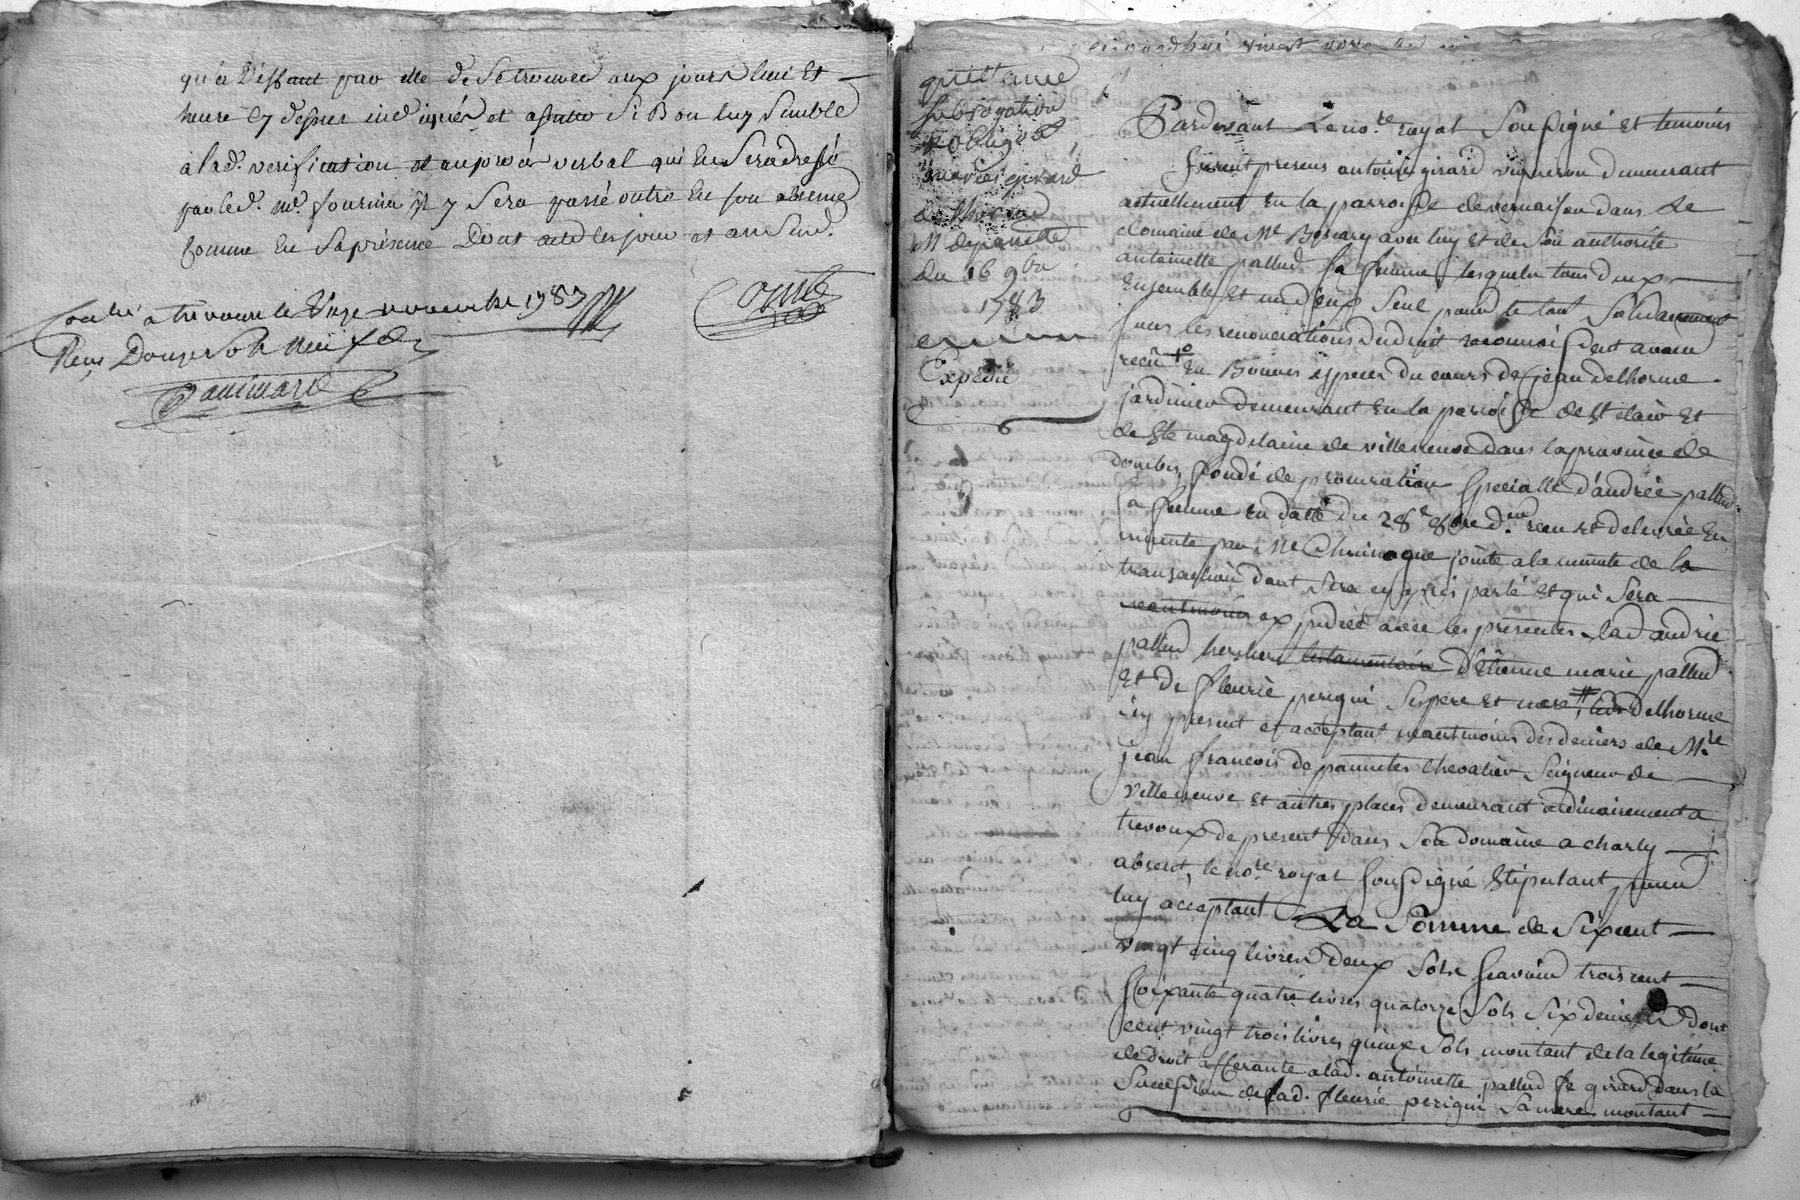 qu'a deffaut par elle de se trouver aux jours lieu et
heure cy dessus indiqués, et assister si Bon luy semble
a lad. verification et au procès verbal qui en sera dressé
par led. me. fourina il y sera passé outre en son absence
comme en sa présence Dont acte les jour et an susd.
Comte
Conllé a trevoux le onze novembre 1783
Reçu Douze sols neuf d.
quittance
subrogation
& obligaõn
mariés girard
delhorme
M depanette
du 16 9bre
1783
Expédié
aujourdhui vingt nove
Pardevant Le nore. royal Soussigné et temoins
furent presens antoine girard vigneron demeurant
actuellement En la parroisse de vernaison dans Le
domaine de Me Boscary avec luy et de Son authorité
antoinette pallud sa femme lesquels tous deux
Ensemble et un d'eux seul pour le tout Solidairement
sous les renonciations du droit reconnoissent avoir
recû + En Bonnes especes du cours de jean delhorme
jardinier demeurant En la parroisse de st clair et
de Ste magdelaine de villeneuve dans la province de
dombes, fondé de procuration specialle d'andrée pallud
sa femme En datte du 28e 8bre d.er recu et delivrée En
minute par Me Chuinague jointe a la minute de la
transaction dont sera cy après parlé et qui Sera
neantmoins expediée avec les presentes lad andrée
pallud heritiere testamentaire d'Etienne marie pallud
et de fleurie perigui ses pere et mere, # led delhorme
icy present et acceptant neantmoins des deniers de Mre
jean francois de pannettes chevalier Seigneur de
villeneuve et autres places demeurant ordinairement a
trevoux de present dans Son domaine a charly
absent, le nore royal soussigné stipulant pour
luy acceptant La Somme de Six cent
vingt cinq livres deux sols scavoir trois cent
soixante quatre livres quatorze sols six deniers dont
cent vingt trois livres quinze sols montant de la legitime
de droit afferante a lad. antoinette pallud fe girard dans la
Succession de lad. fleurie perigui sa mere montant